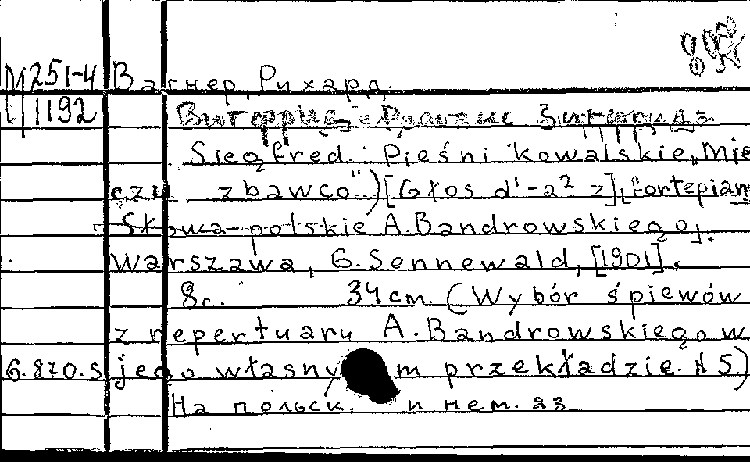 М251-4 Вагнер, Рихард.
1192
Siegfred. Pieśni kowalskie „Mie
czu zbawco") [Głos d¹-a² z] fortepian
Słowa polskie A. Bandrowskiego.
Warszawa, G. Sennewald, [1901].
8с. 34 cm. (Wybór śpiewów
z repertuaru A. Bandrowskiego w
6.870.s jego własnym przekładzie. N 5)
На польск. и нем. яз